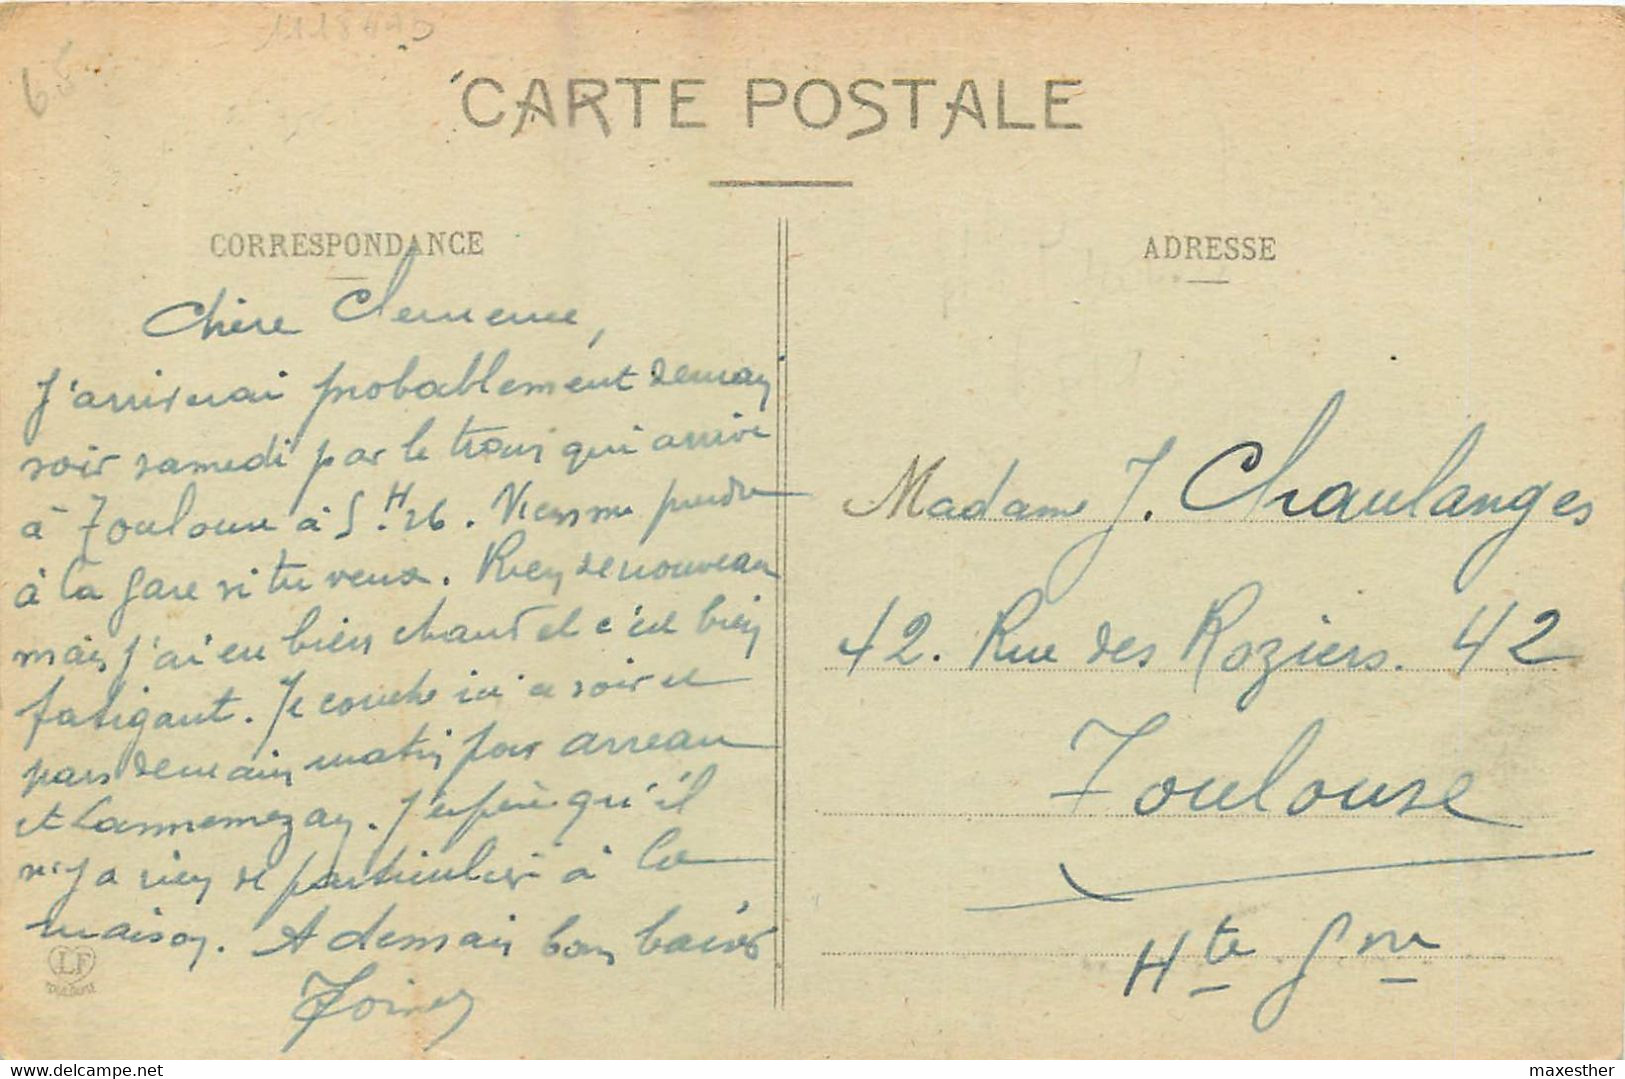 11184AD
65
CARTE POSTALE
CORRESPONDANCE
Chère Clemence,
J'arriverai probablement demain
soir samedi par le train qui arrive
à Toulouse à 5.H26. Viens me prendre
à la gare si tu veux. Rien de nouveau
mais j'ai eu bien chaud et c'est bien
fatigant. Je couche ici ce soir et
pars demain matin par Arreau
et Lannemezan. J'espère qu'il
n'y a rien de particulier à la
maison. A demain bon baiser
LF
TOULOUSE
ADRESSE
Madame J. Chaulanges
42. Rue des Roziers. 42
Toulouse
Hte Gne
delcampe.net
maxesther